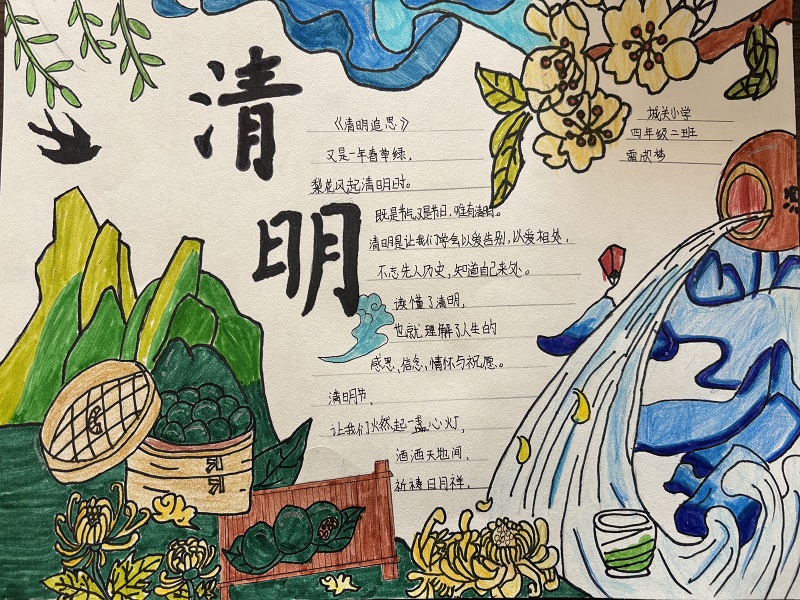 清明
《清明追思》
又是一年春草绿,
梨花风起清明时。
既是节气又是节日,唯有清明。
清明是让我们学会以爱告别,以爱相处,
不忘先人历史,知道自己来处。
读懂了清明,
也就理解了人生的
感恩、信念、情怀与祝愿。
清明节,
让我们火然起一盏心灯,
洒洒天地间,
祈祷日月祥。
城关小学
四年级二班
酒